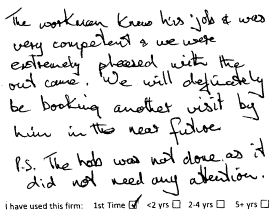 The workman knew his job & was
very competent & we were
extremely pleased with the
out come. We will definately
be booking another visit by
him in the near future
P.S. The hob was not done as it
did not need any attention.
I have used this firm: 1st Time ☑ <2 yrs ☐ 2-4 yrs ☐ 5+ yrs ☐